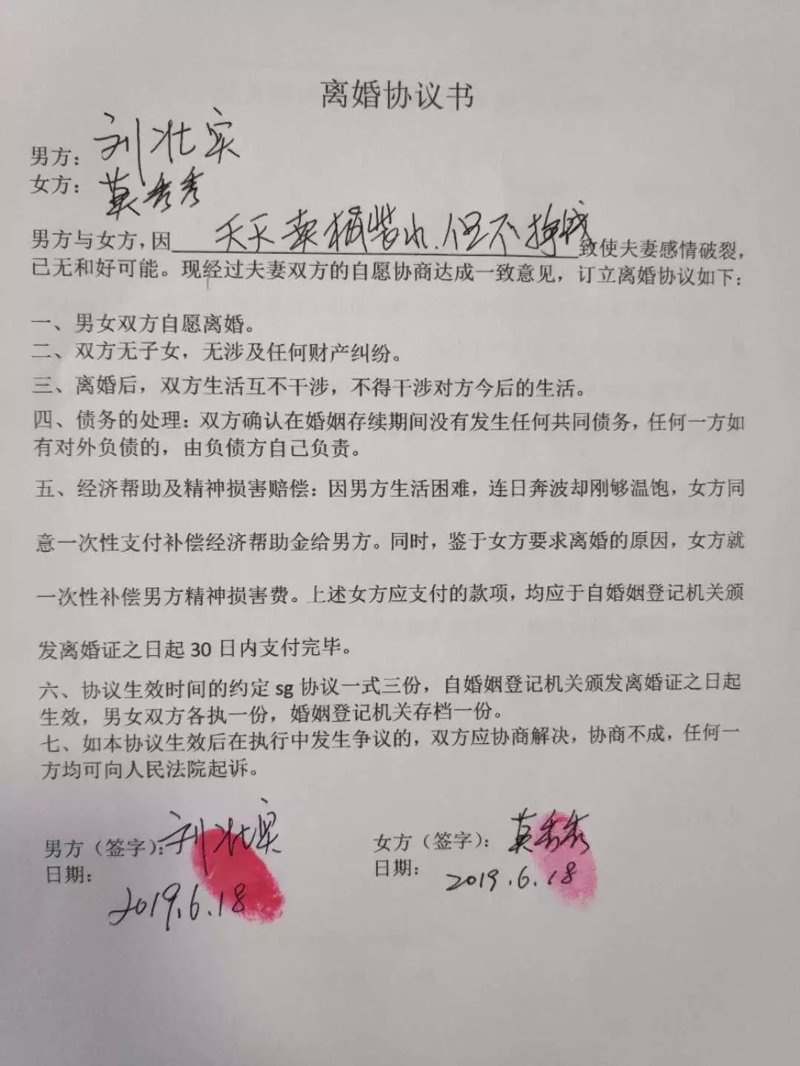 离婚协议书
男方：刘壮实
女方：莫秀秀
男方与女方，因 天天卖桶装水，但不挣钱 致使夫妻感情破裂，
已无和好可能。现经过夫妻双方的自愿协商达成一致意见，订立离婚协议如下：
一、男女双方自愿离婚。
二、双方无子女，无涉及任何财产纠纷。
三、离婚后，双方生活互不干涉，不得干涉对方今后的生活。
四、债务的处理：双方确认在婚姻存续期间没有发生任何共同债务，任何一方如
有对外负债的，由负债方自己负责。
五、经济帮助及精神损害赔偿：因男方生活困难，连日奔波却刚够温饱，女方同
意一次性支付补偿经济帮助金给男方。同时，鉴于女方要求离婚的原因，女方就
一次性补偿男方精神损害费。上述女方应支付的款项，均应于自婚姻登记机关颁
发离婚证之日起 30 日内支付完毕。
六、协议生效时间的约定 sg 协议一式三份，自婚姻登记机关颁发离婚证之日起
生效，男女双方各执一份，婚姻登记机关存档一份。
七、如本协议生效后在执行中发生争议的，双方应协商解决，协商不成，任何一
方均可向人民法院起诉。
男方（签字）：刘壮实
日期：2019.6.18
女方（签字）：莫秀秀
日期：2019.6.18